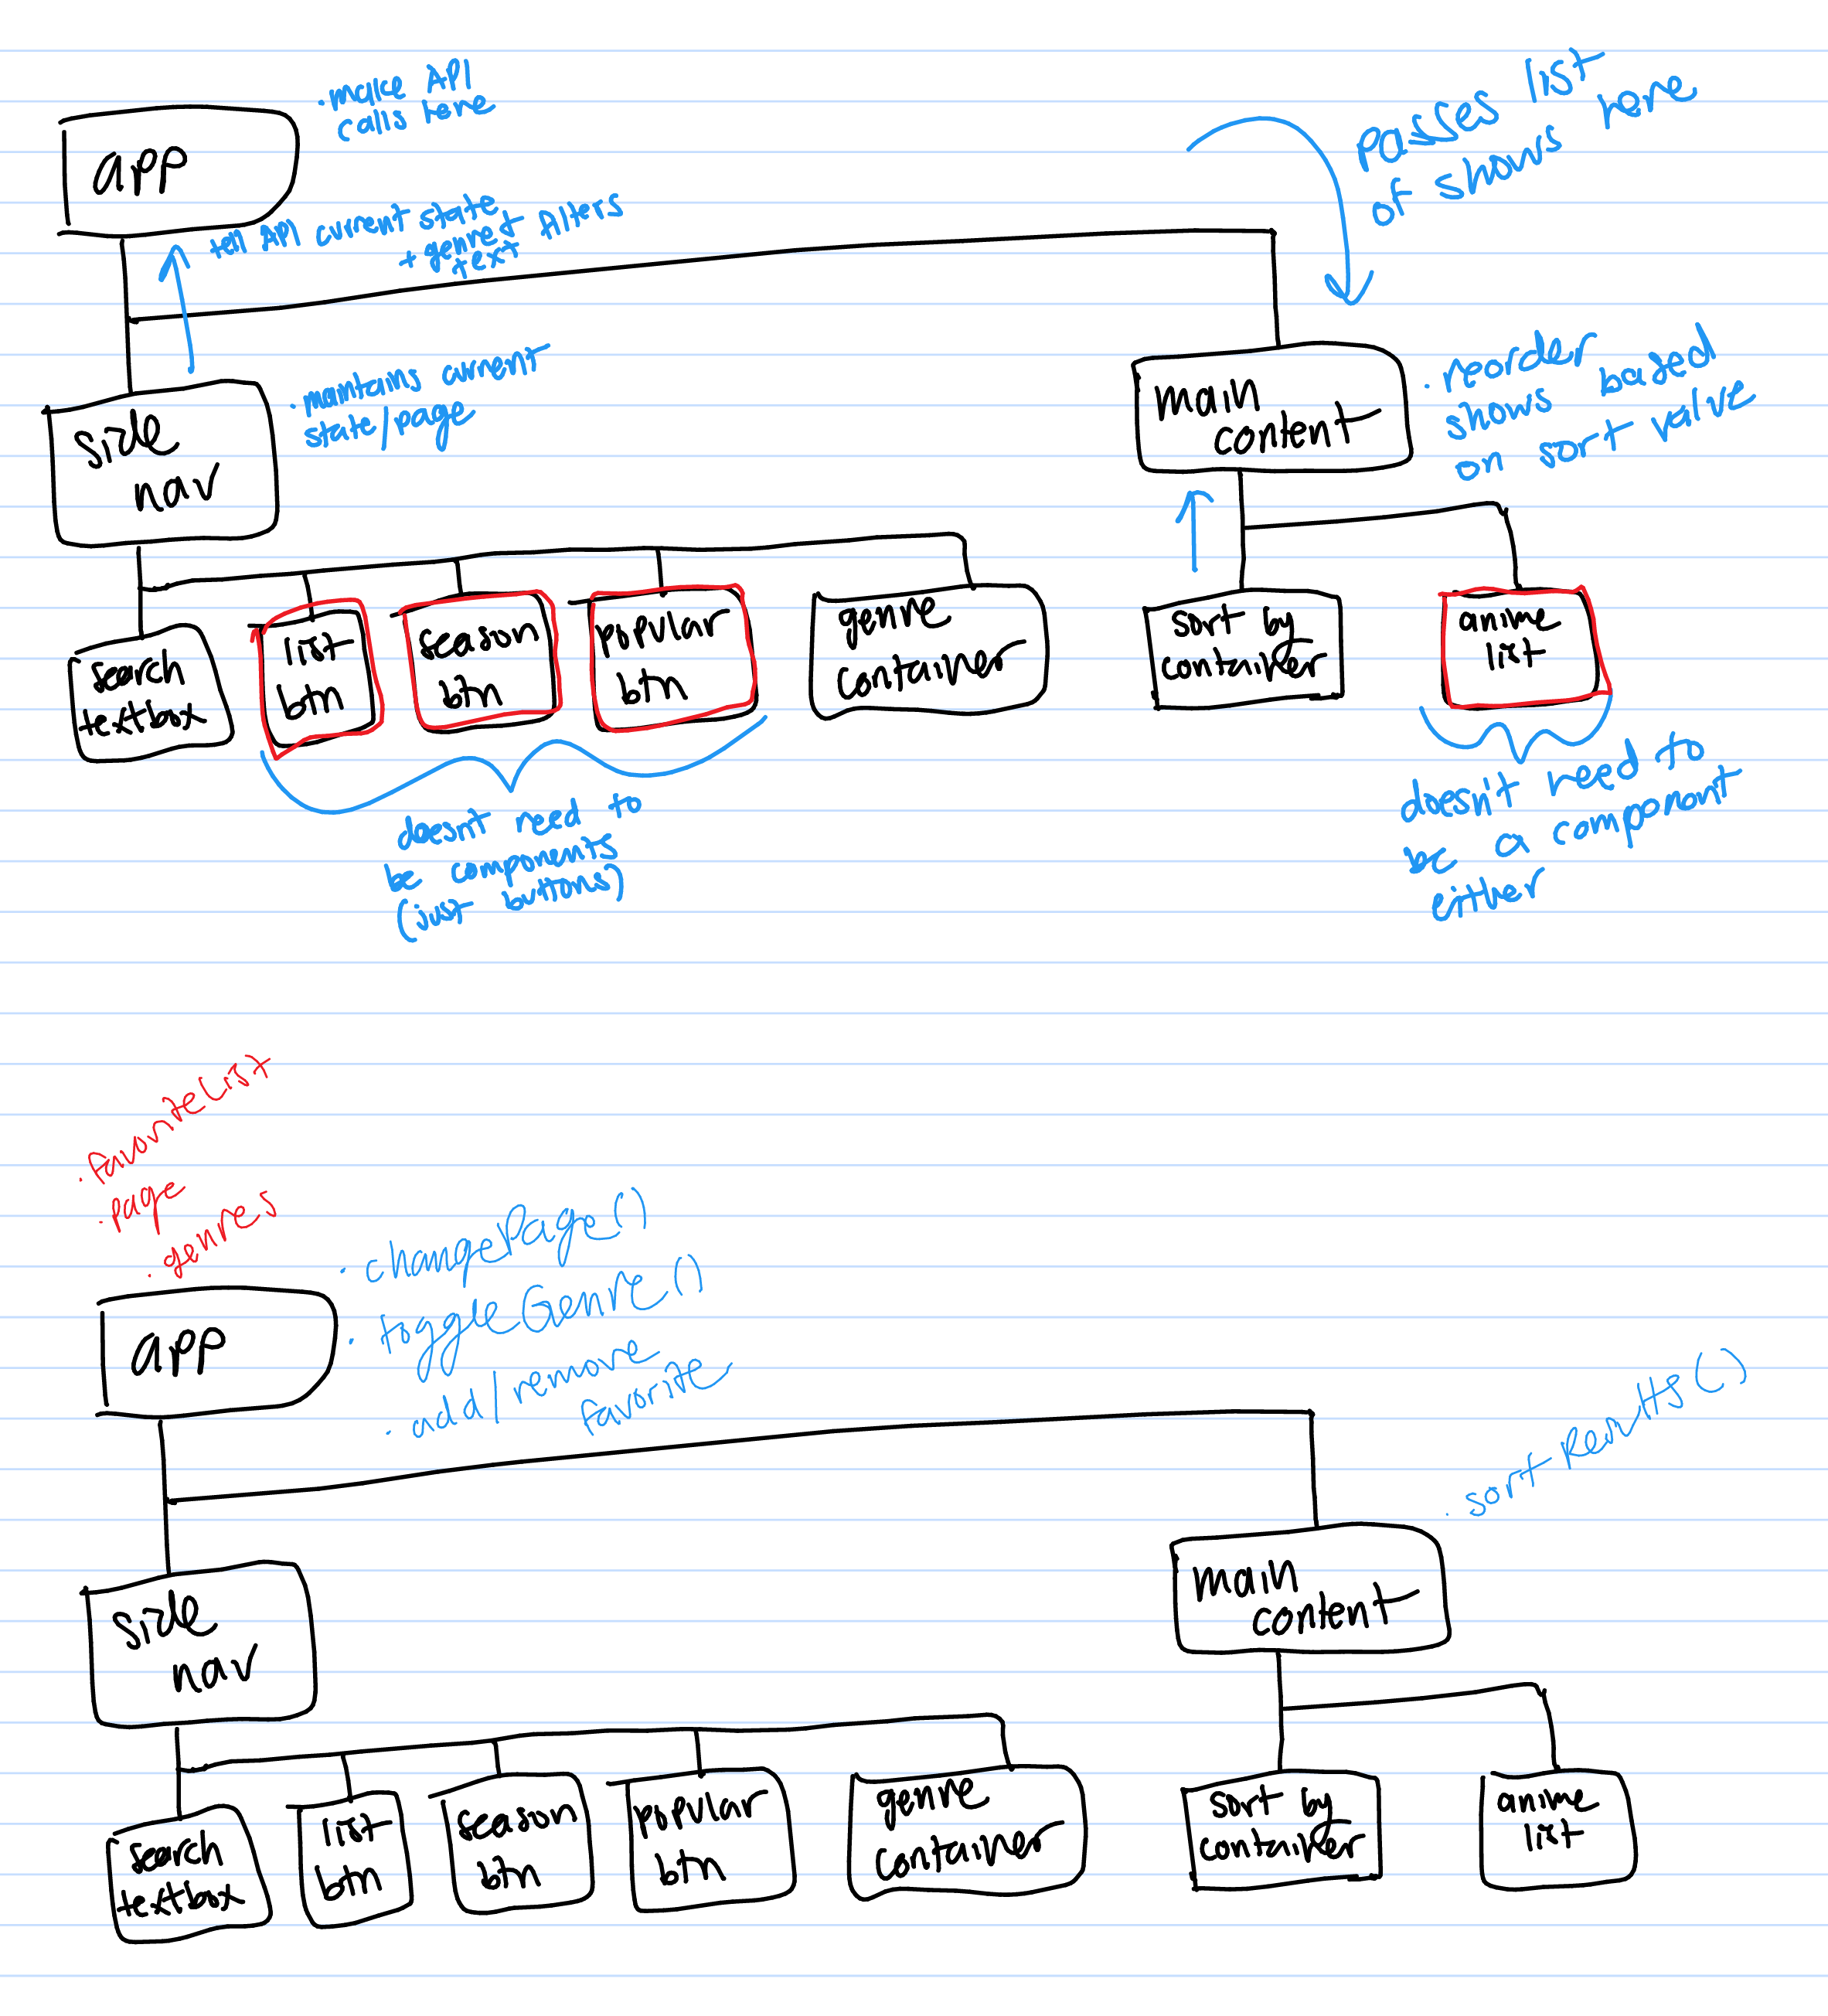 · make API
calls here
app
tell API current state
+ genre + filters
text
passes list
of shows here
side
nav
· maintains current
state/page
main
content
· reorder
shows based
on sort value
search
textbox
list
btn
season
btn
popular
btn
genre
container
sort by
container
anime
list
doesn't need to
be components
(just buttons)
doesn't need to
be a component
either
· favoriteList
· page
· genres
app
· changePage()
· toggleGenre()
· add/remove
favorite
side
nav
main
content
· sortResults()
search
textbox
list
btn
season
btn
popular
btn
genre
container
sort by
container
anime
list